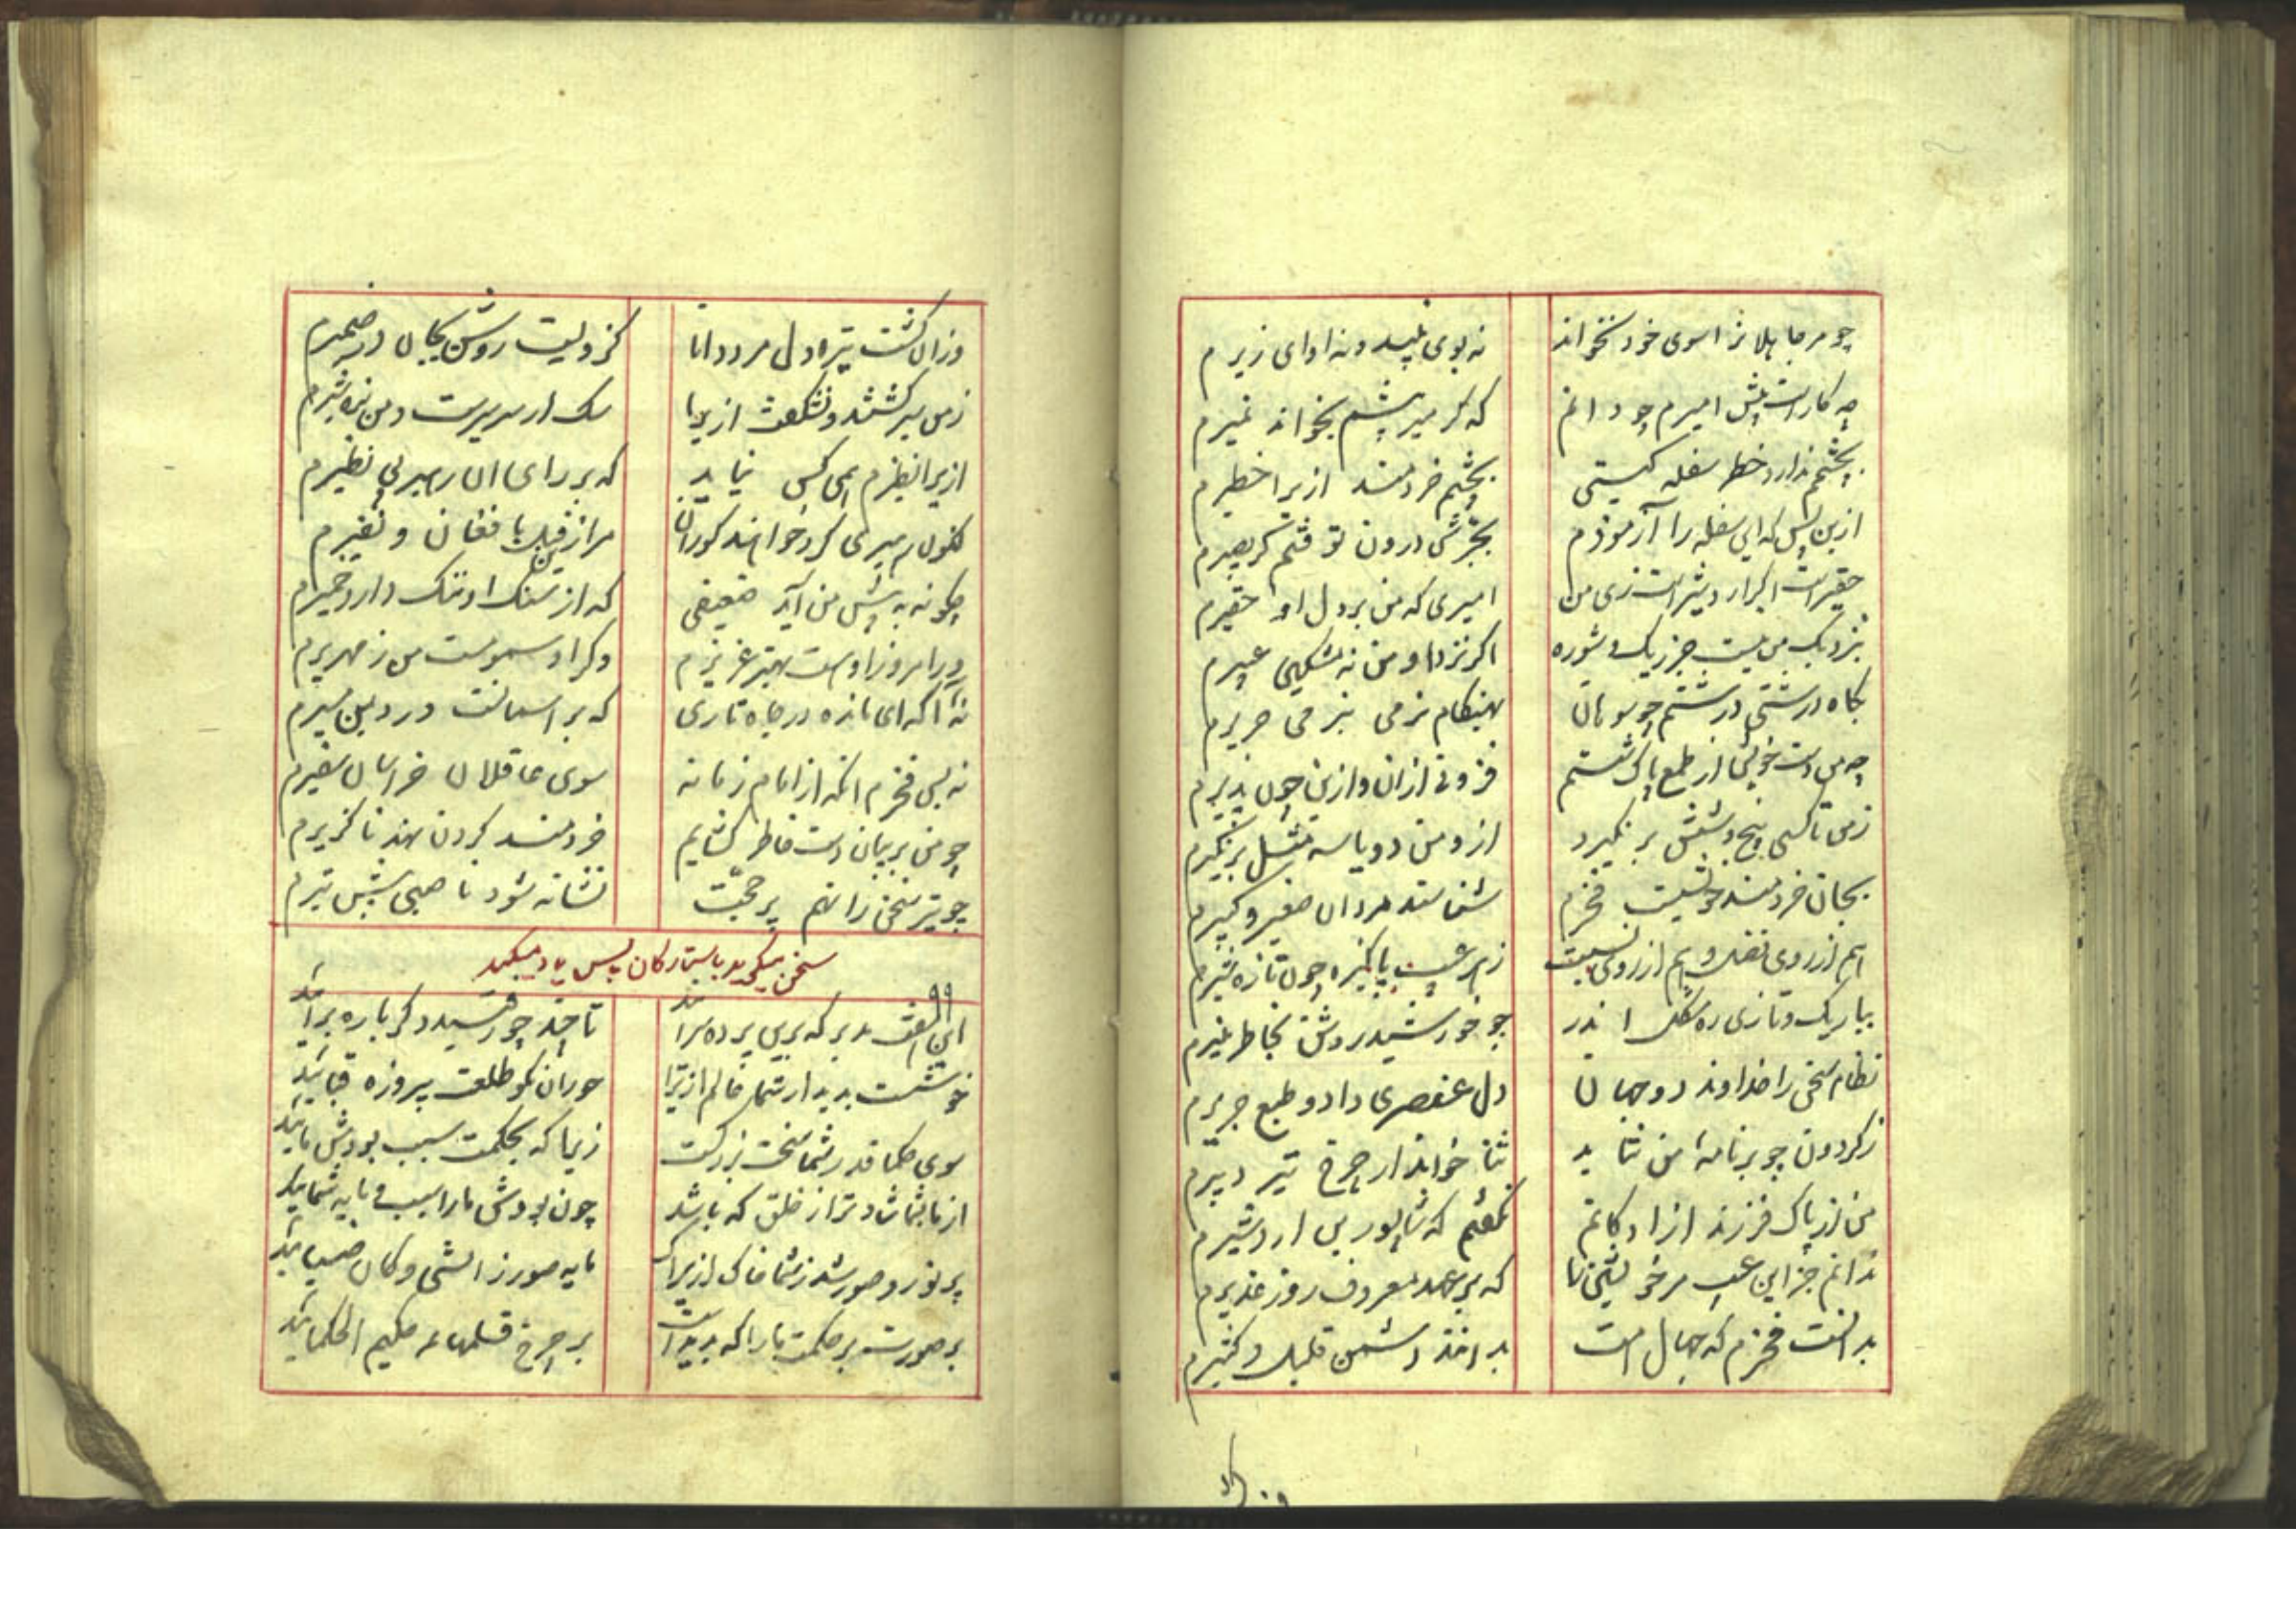 چو مر جاهلانرا سوی خود نخواند نه بوی نبید و نه اوای زیرم
چه کار است پیش امیرم چو دانم که گر میر پیشم بخواند نمیرم
بچشمم ندارد خطر سفله گیتی بچشم خردمند ازیرا خطیرم
ازین پس که این سفله را آزمودم بجرش درون نوفتم گر بصیرم
حقیر است اگر اردشیر است زی من امیری که من بر دل او حقیرم
بنزدیک من نیست جز ریک و شوره اگر نزد او من نه مشکین عبیرم
بگاه درشتی درشتم چو سوهان بهنگام نرمی بنرمی حریرم
چه من دست خویش از طمع پاک شستم فزونی ازان و ازین چون پذیرم
زمن تا کسی پنج و شش بر نگیرد ازو من دو یا سه مثل بر نگیرم
بجان خردمند خویشست فخرم شناسند مردان صغیر و کبیرم
هم از روی فضل و هم از روی نسبت ز هر عیب پاکیزه چون تازه شیرم
بباریک و تاری ره مشکل اندر چو خورشید روشن بخاطر منیرم
نظام سخن را خداوند دو جهان دل عنصری داد و طبع جریرم
ز گردون چو بر نامه من بتابد ثنا خواند از چرخ تیر دبیرم
من از پاک فرزند ازادگانم نگفتم که شاپور بن اردشیرم
ندانم جز این عیب مر خویشتن را که بر عهد معروف روز غدیرم
بدانست فخرم که جهال امت بدانند دشمن قلیل و کثیرم
وزان گشت تیره دل مرد دانا کز ویست روشن بجان در ضمیرم
زمن سیر گشتند و نشگفت ازیرا سگ ار سیر سیرست و من نره شیرم
ازیرا نظیرم همی کس نیاید که بر رای ان رهبر بی نظیرم
کنون میری گر خواهند کوران مرا زین قبل با فغان و نفیرم
چگونه به پیش من آید ضعیفی که از سنگ او ننگ دارد خمیرم
ورا مروز او ست بهتر عزیزم وگر او سمومست من زمهریرم
نه آگه ای مانده در چاه تاری که بر اسمانست در دین سریرم
نه بس فخرم انکه از امام زمانه سوی عاقلان خراسان سفیرم
چو من بر بیان دست خاطر گشایم خردمند گردن نهد ناگزیرم
چو تیر سخن را نهم پر حجت نشانه شود ناصبی پیش تیرم
سخن میگوید با ستارکان پس یاد میکند
۹۹
خوشست بدیدار شما عالم ازیرا حوران نکو طلعت پیروزه قبائید
سوی حکما قدر شما سخت بزرگست زیرا که بحکمت سبب بودش مائید
از ما بشما شادتر از خلق که باشد چون بودش ما را سبب و مایه شمائید
پر نور و صور شد ز شما خاک ازیراک مایه صور زائی و کان ضیائید
بر صورت پر حکمت ما را که پدیدست بر چرخ قلمهای حکیم الحکمائید